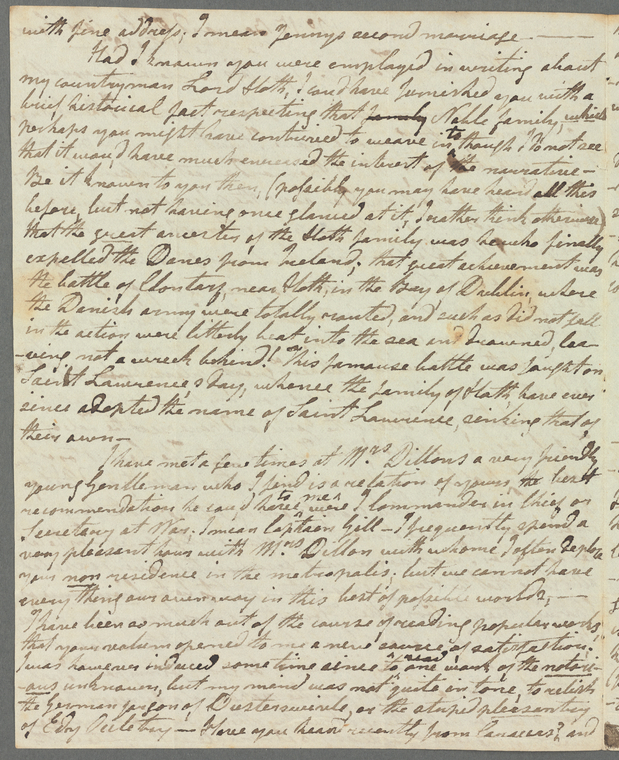 with fine address; I mean Jennys second marriage. —
Had I known you were employed in writing about
my countryman Lord Hoth, I coud have furnished you with a
brief historical fact respecting that family Noble family, which
perhaps you might have contrived to weave in, though I do not see to
that it woud have much encreased the interest of the narrative –
Be it known to you then, (possibly you may have heard all this
before, but not having once glanced at it, I rather think otherwise)
that the great ancestor of the Hoth family was he who finally
expelled the Danes from Ireland; that great achievement was
the battle of Clontarf, near Hoth, in the Bay of Dublin, where
the Danish army were totally routed, and such as did not fall
in the action were litterly beat into the sea and drowned, lea-
-ving not a wreck behind! This famouse battle was fought on
Saint Lawrence's day, whence the family of Hoth have ever
since adopted the name of Saint Lawrence, sinking that of
their own –
I have met a few times at Mrs Dillons a very friendly
young Gentleman who I find is a relation of yours, the best
recommendation he coud have to me, were I Commander in Chief or
Secretary at War, I mean Captain Gill – I frequently spend a
very pleasant hour with Mrs Dillon with whome I often deplore
your non residence in the metropolis; but we cannot have
every thing our own way in this best of possible worlds; —
I have been so much out of the course of reading popular works,
that your volums opened to me a new source of satisfaction,
I was however induced some time since to read one work of the notori-
-ous unknown, but my mind was not quite in tone, to relish
the German jargon of Dusterswivle, or the stupid pleasantry
of Edy Ocletry — Have you heard recently from Canavas? and